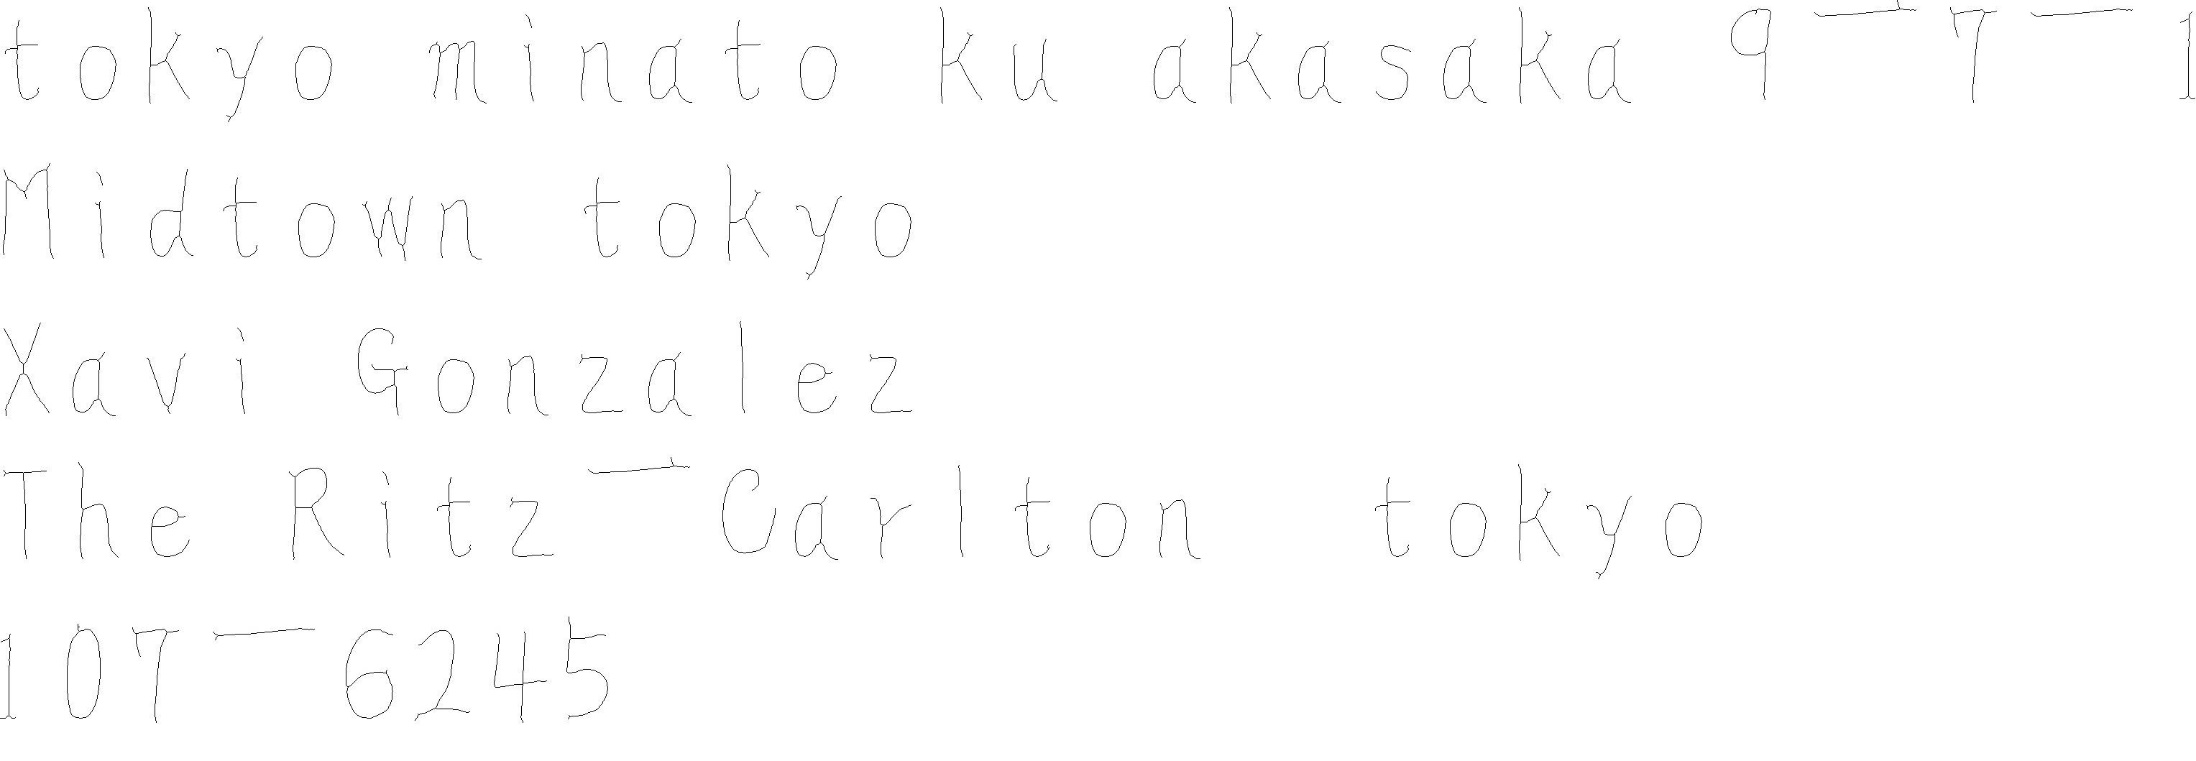 tokyo minato ku akasaka 9-7-1
Midtown tokyo
Xavi Gonzalez
The Ritz-Carlton tokyo
107-6245